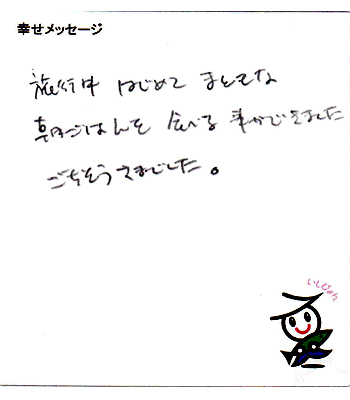 幸せメッセージ
旅行中 はじめて まともな
朝ごはんを 食べる 事ができました
ごちそうさまでした。